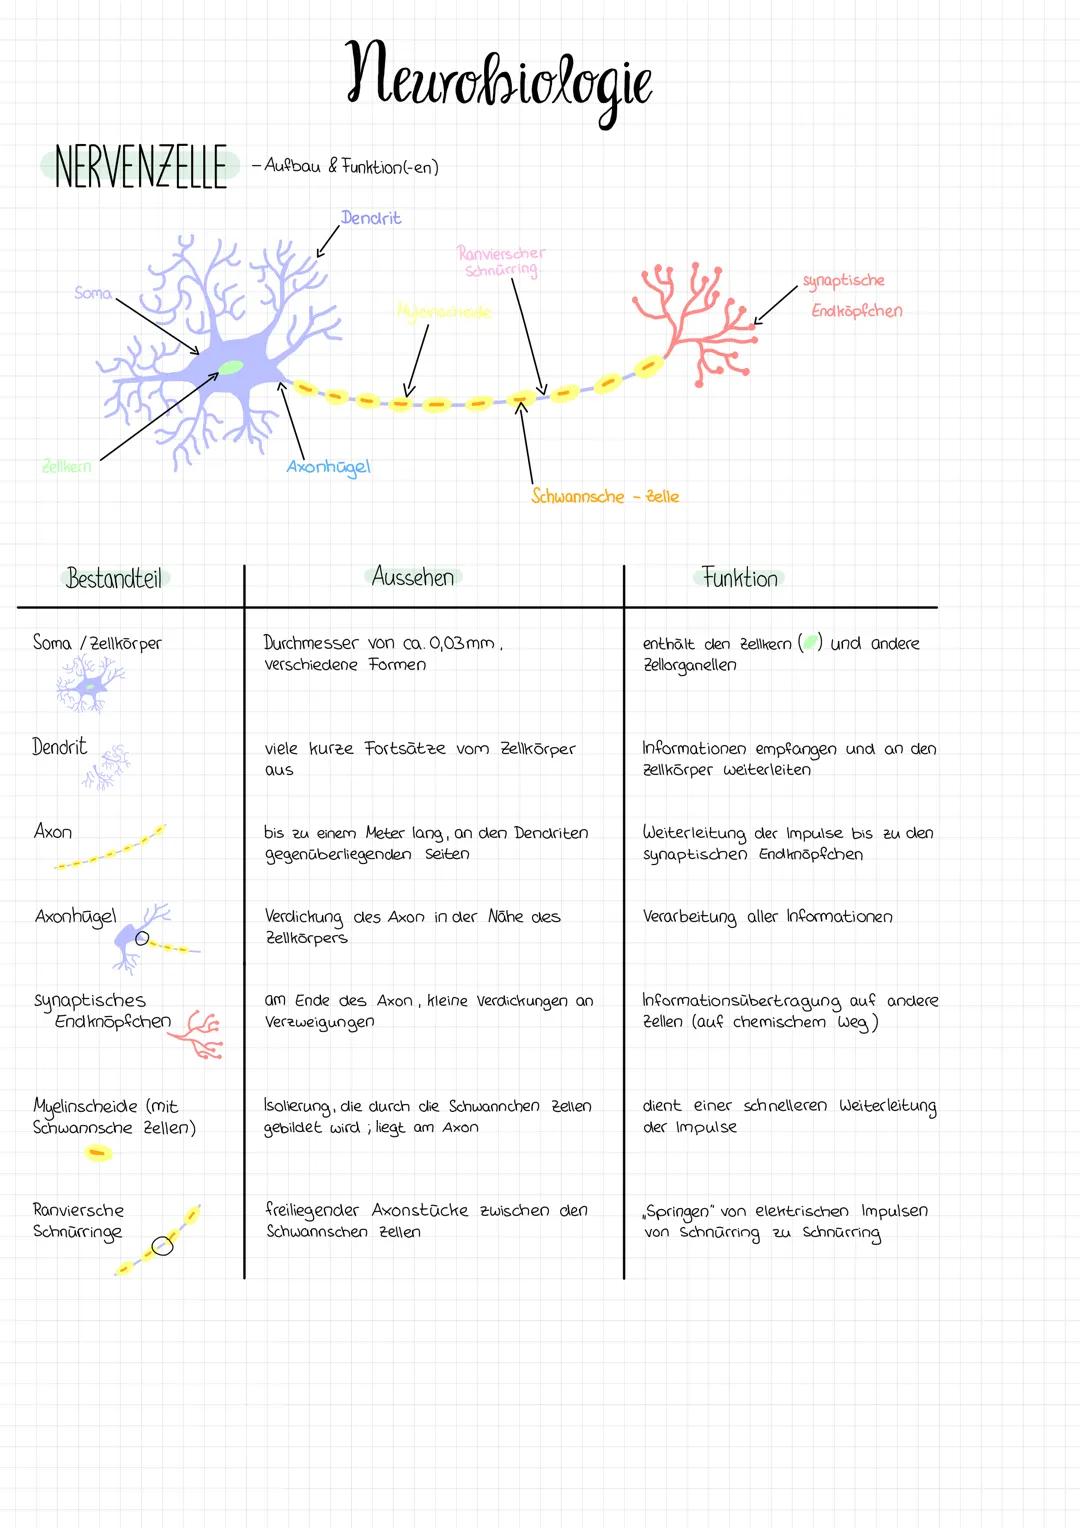 Neurobiologie
NERVENZELLE - Aufbau & Funktion(-en)
Dendrit
Ranvierscher
Schnürring
synaptische
Endköpfchen
Soma
Zellkern
Axonhügel
Schwannsche - Zelle
Bestandteil
Aussehen
Funktion
Soma / Zellkörper
Durchmesser von ca. 0,03mm,
verschiedene Formen
enthält den Zellkern ( ) und andere
Zellorganellen
Dendrit
viele kurze Fortsätze vom Zellkörper
aus
Informationen empfangen und an den
Zellkörper weiterleiten
Axon
bis zu einem Meter lang, an den Dendriten
gegenüberliegenden Seiten
Weiterleitung der Impulse bis zu den
synaptischen Endknöpfchen
Axonhügel
Verdickung des Axon in der Nähe des
Zellkörpers
Verarbeitung aller Informationen
synaptisches
Endknöpfchen
am Ende des Axon, kleine Verdickungen an
Verzweigungen
Informationsübertragung auf andere
Zellen (auf chemischem Weg)
Myelinscheide (mit
Schwannsche Zellen)
Isolierung, die durch die Schwannchen Zellen
gebildet wird ; liegt am Axon
dient einer schnelleren Weiterleitung
der Impulse
Ranviersche
Schnürringe
freiliegender Axonstücke zwischen den
Schwannschen Zellen
„Springen" von elektrischen Impulsen
von Schnürring zu Schnürring